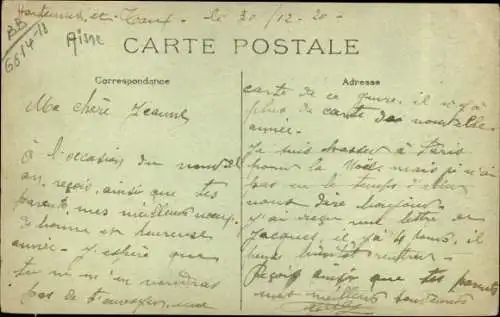 et le 30/12-20-
BB
6614-13
Aisne
CARTE POSTALE
Correspondance
Adresse
Ma chère Jeanne
À l'occasion du nouvel
an, reçois, ainsi que tes
parents, mes meilleurs voeux
de bonne et heureuse
année. J'espère que
tu ne m'en voudras
pas de t'envoyer une
carte de ce genre, il n'y a
plus de carte de nouvelle
année.
Je suis passer à Paris
pour la Noël, mais je n'ai
pas eu le temps d'aller
vous dire bonjour
J'ai reçu une lettre de
Jacques, il y a 4 jours, il
pense bientôt rentrer.
Reçois ainsi que tes parents
mes meilleurs